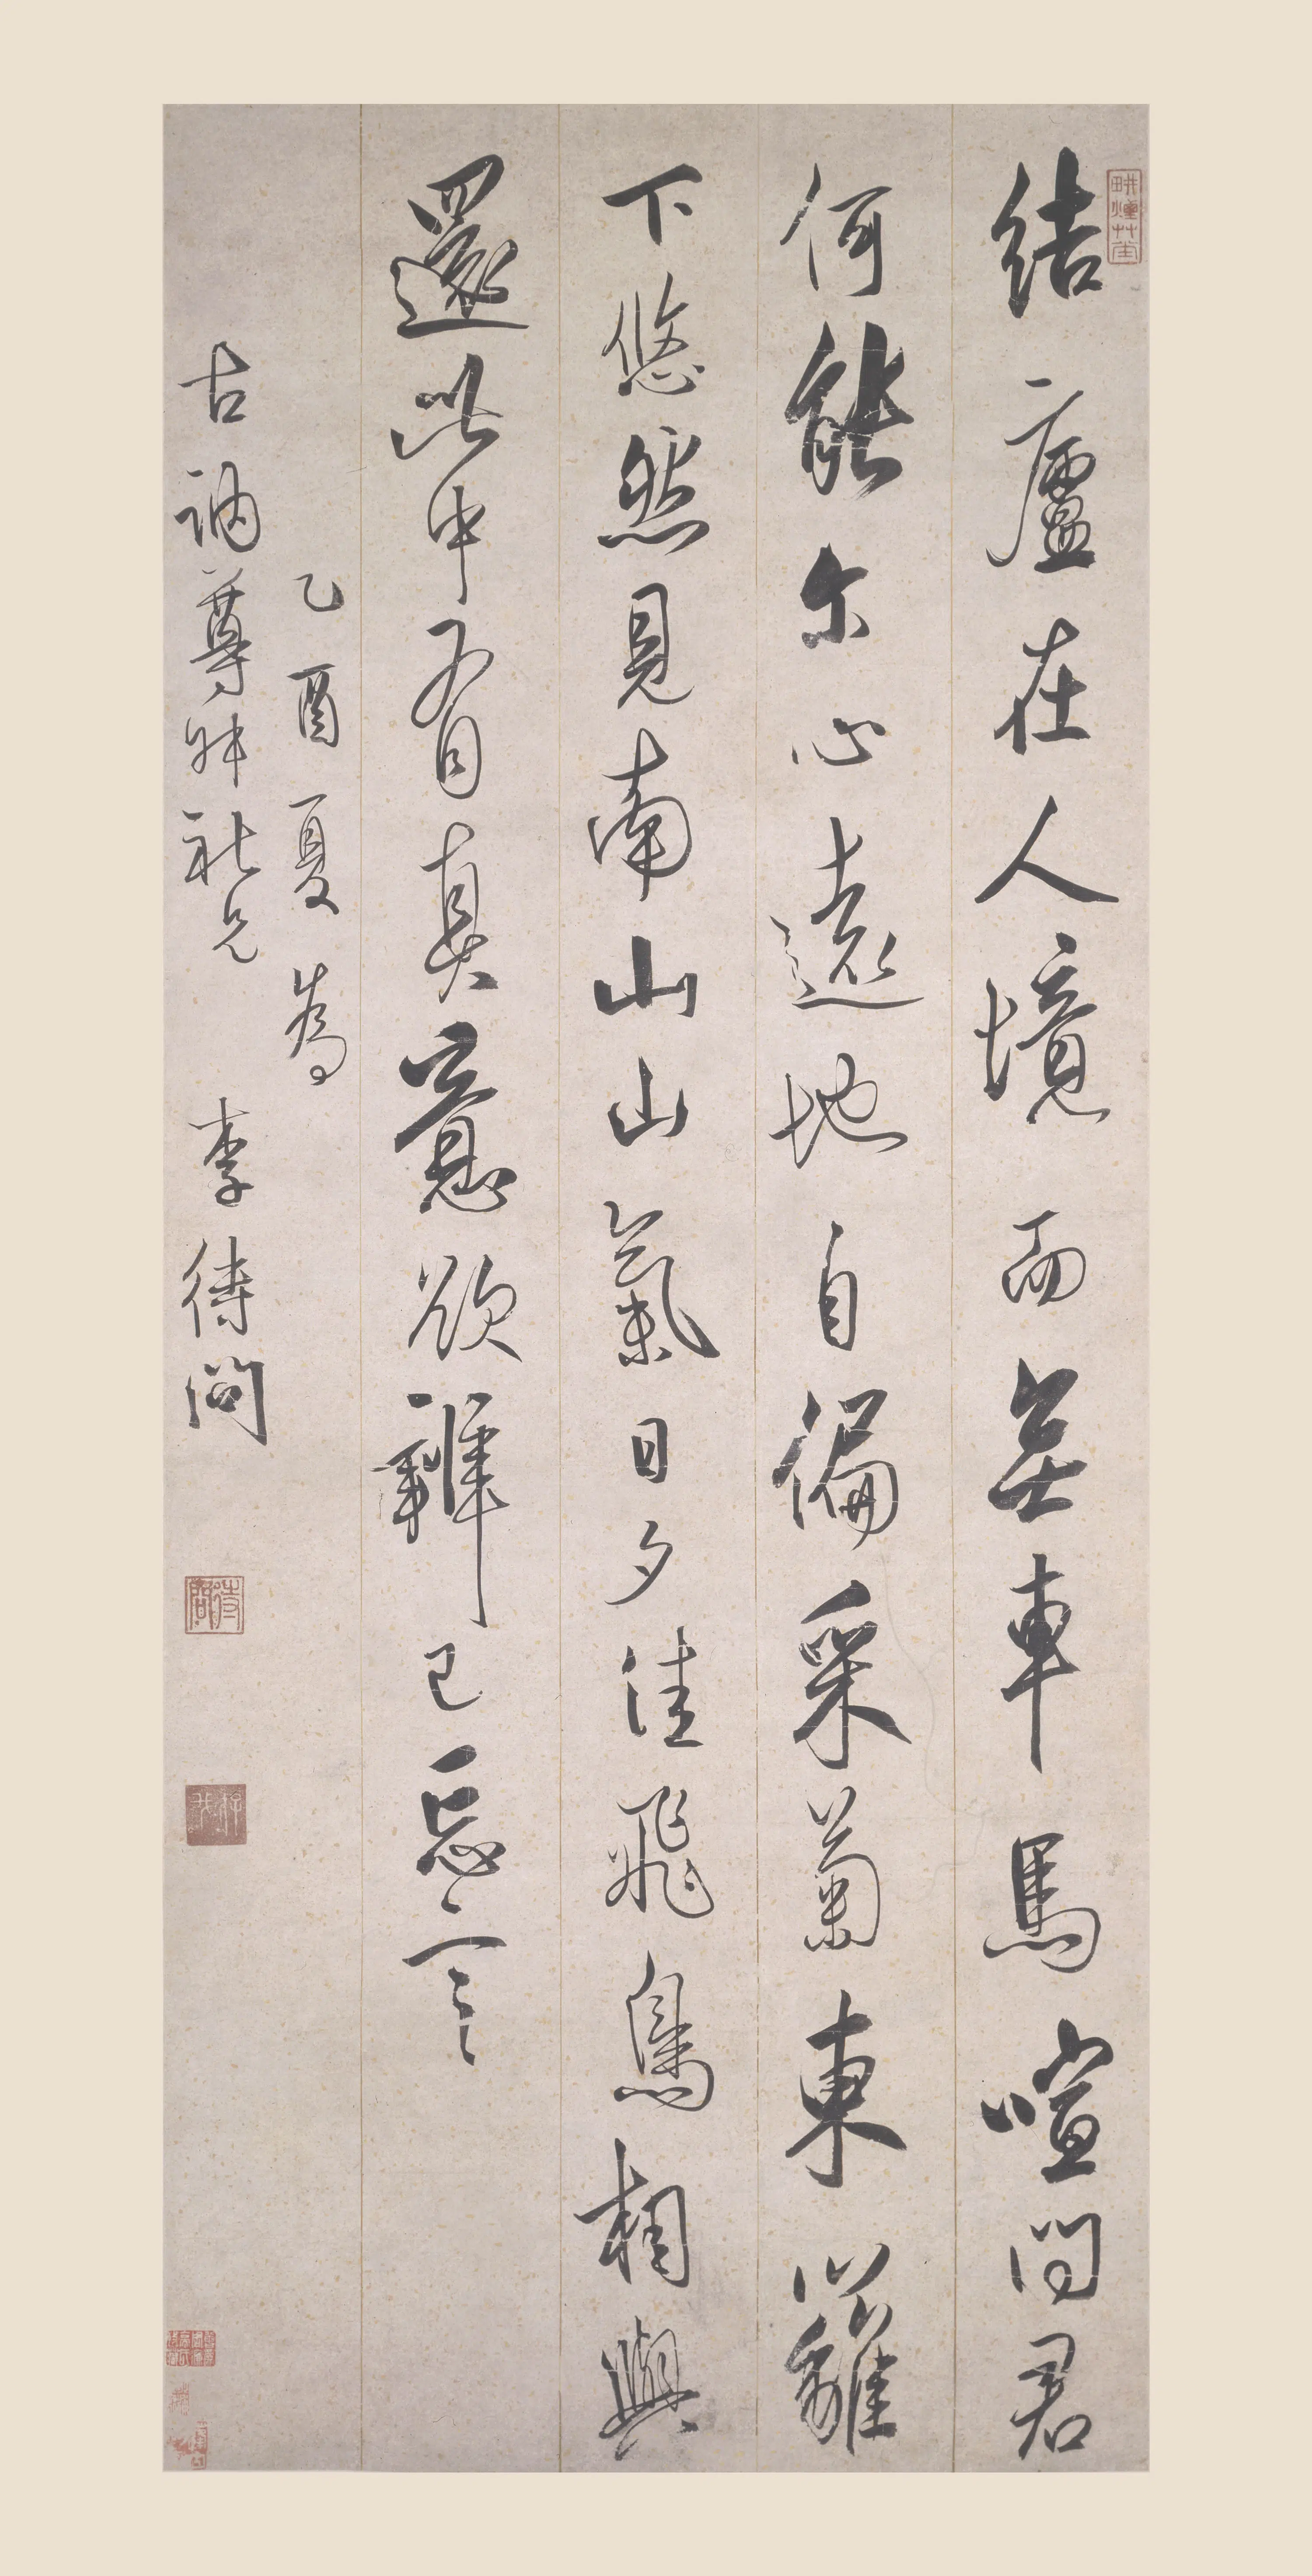 結廬在人境而無車馬喧問君
何能尔心遠地自偏采菊東籬
下悠然見南山山氣日夕佳飛鳥相與
還此中有真意欲辯已忘言
乙酉夏為
古訥尊師社兄 李待問
待問